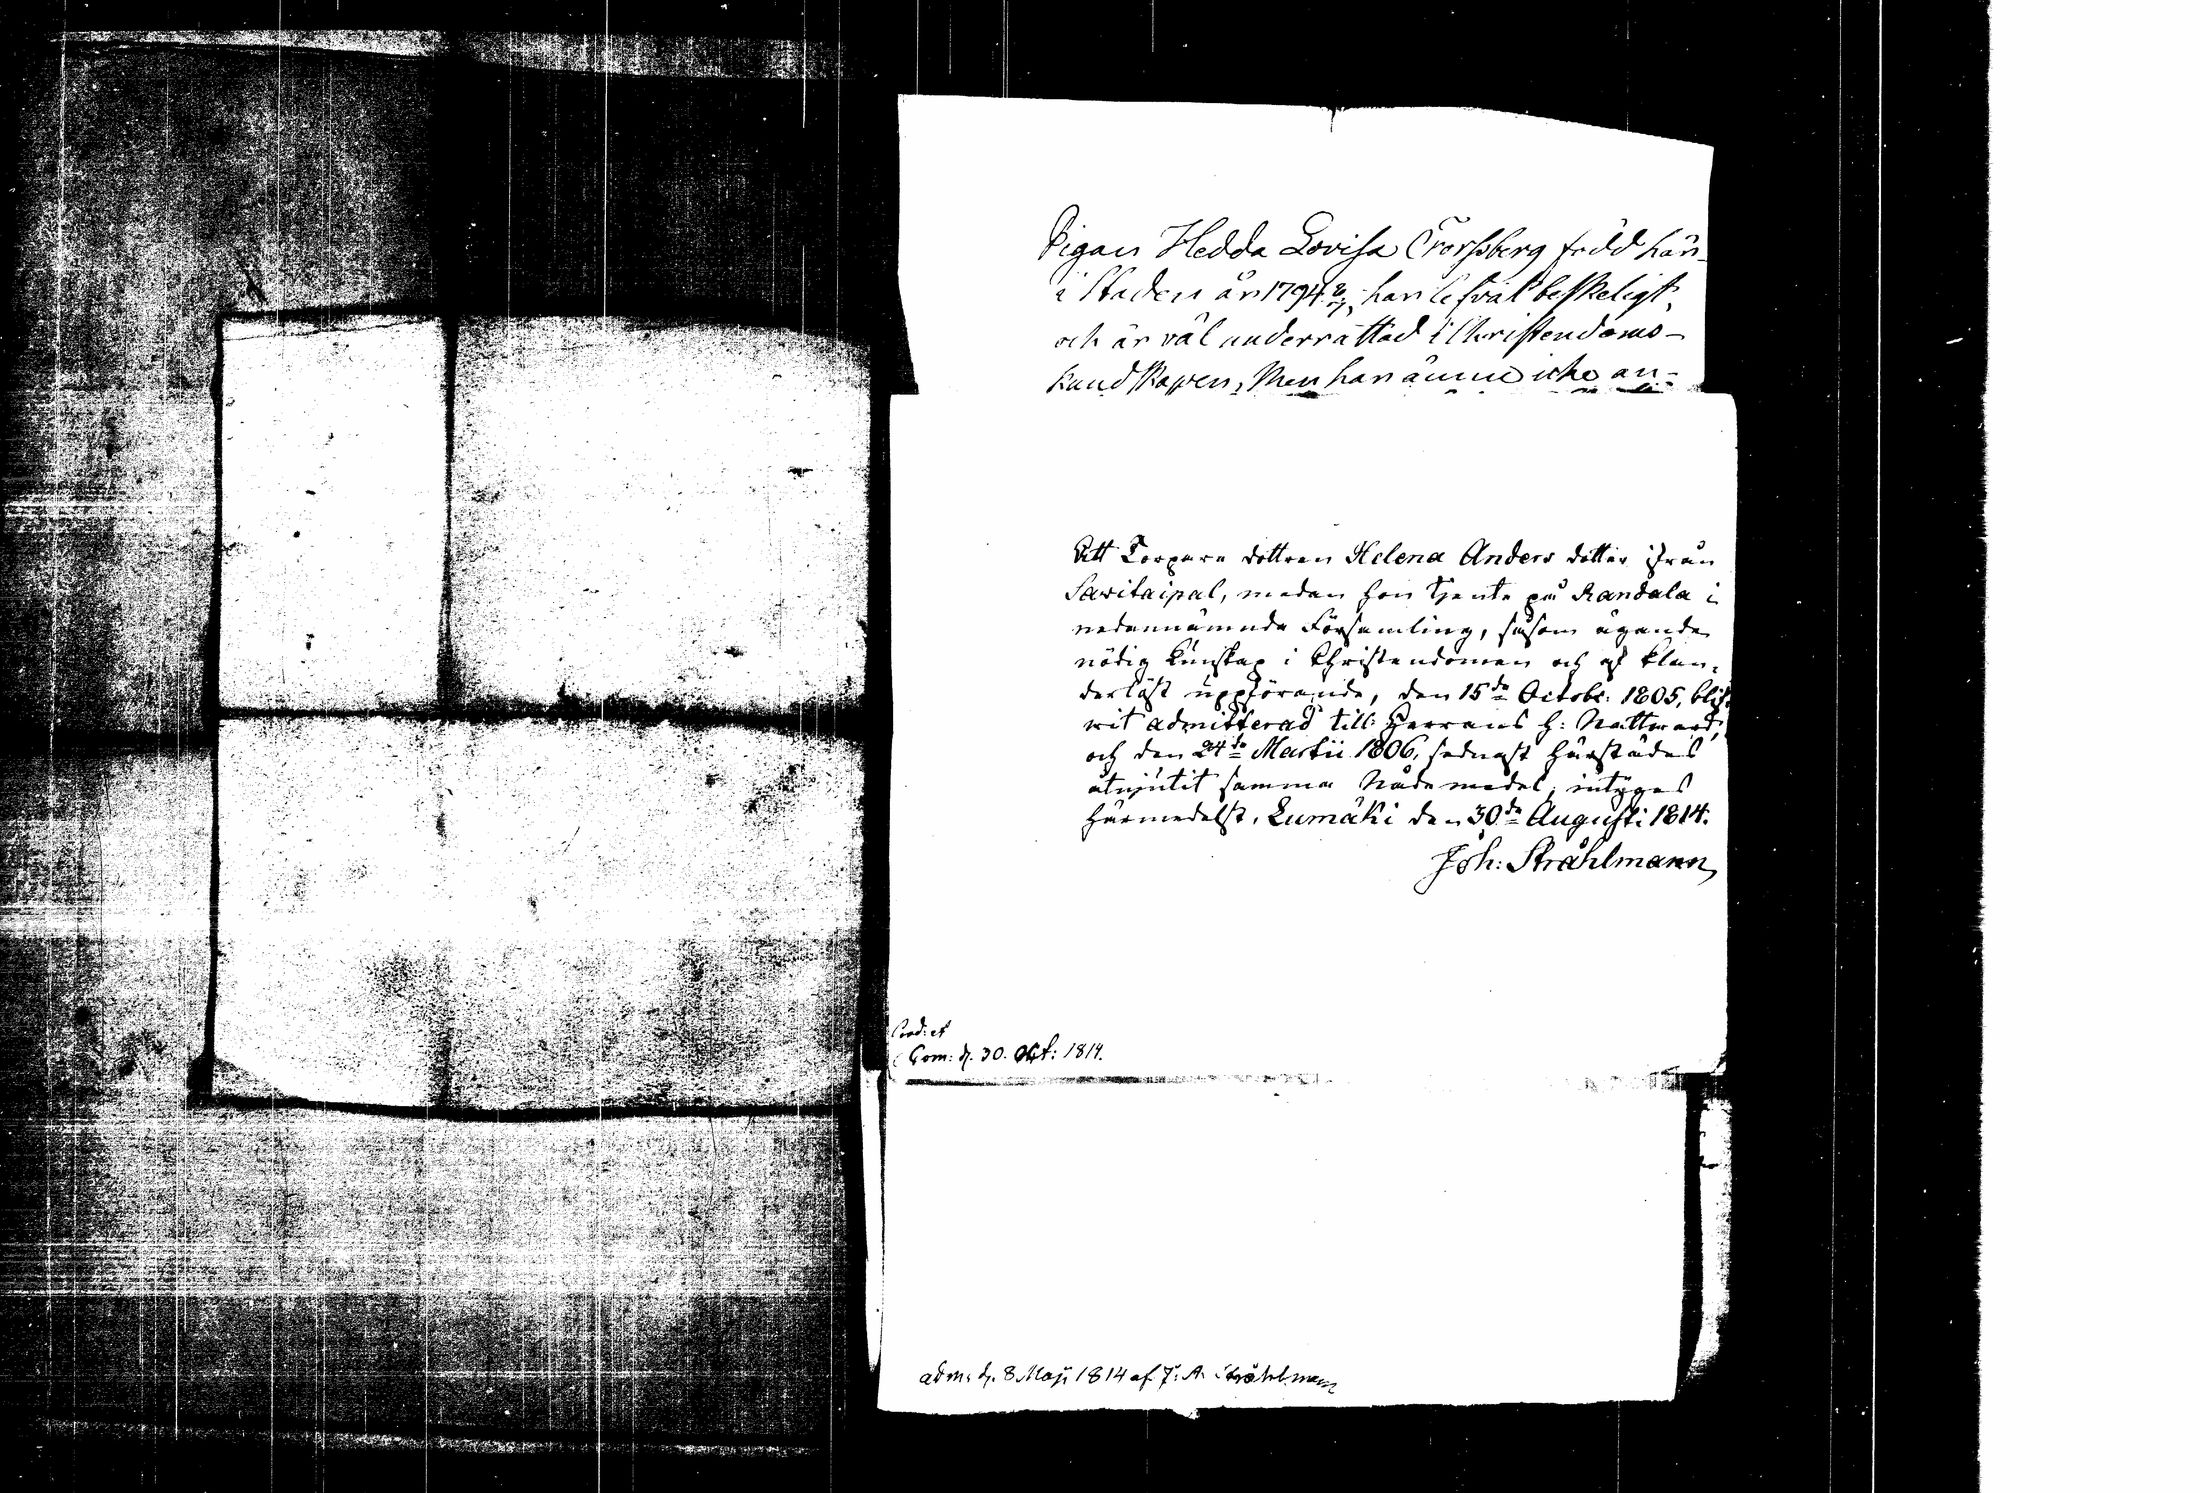 Pigan Hedda Lovisa Forssberg född här
i Staden år 1794 8/7, har läsa väl beskeligt,
och är väl underrättad i Christendoms-
kundskapen, Men har ännu icke an-
Att Torpare dottren Helena Anders dotter ifrån
Savitaipal, medan hon tjente på Randala i
nedannämnde Församling, såsom ägande
nödig kunskap i Christendomen och af klan-
derlöst uppförande, den 15de Octobr: 1805, blif-
wit admitterad till Herrans H: Nattward,
och den 24de Martii 1806, sednast härstädes
åtnjutit samma Nådemedel, intygas
härmedelst, Lumäki den 30de Augusti 1814.
Joh: Stråhlmann
Com: d. 30. Oct: 1814.
adm: d. 8 Maji 1814 af J: A. Stråhlman